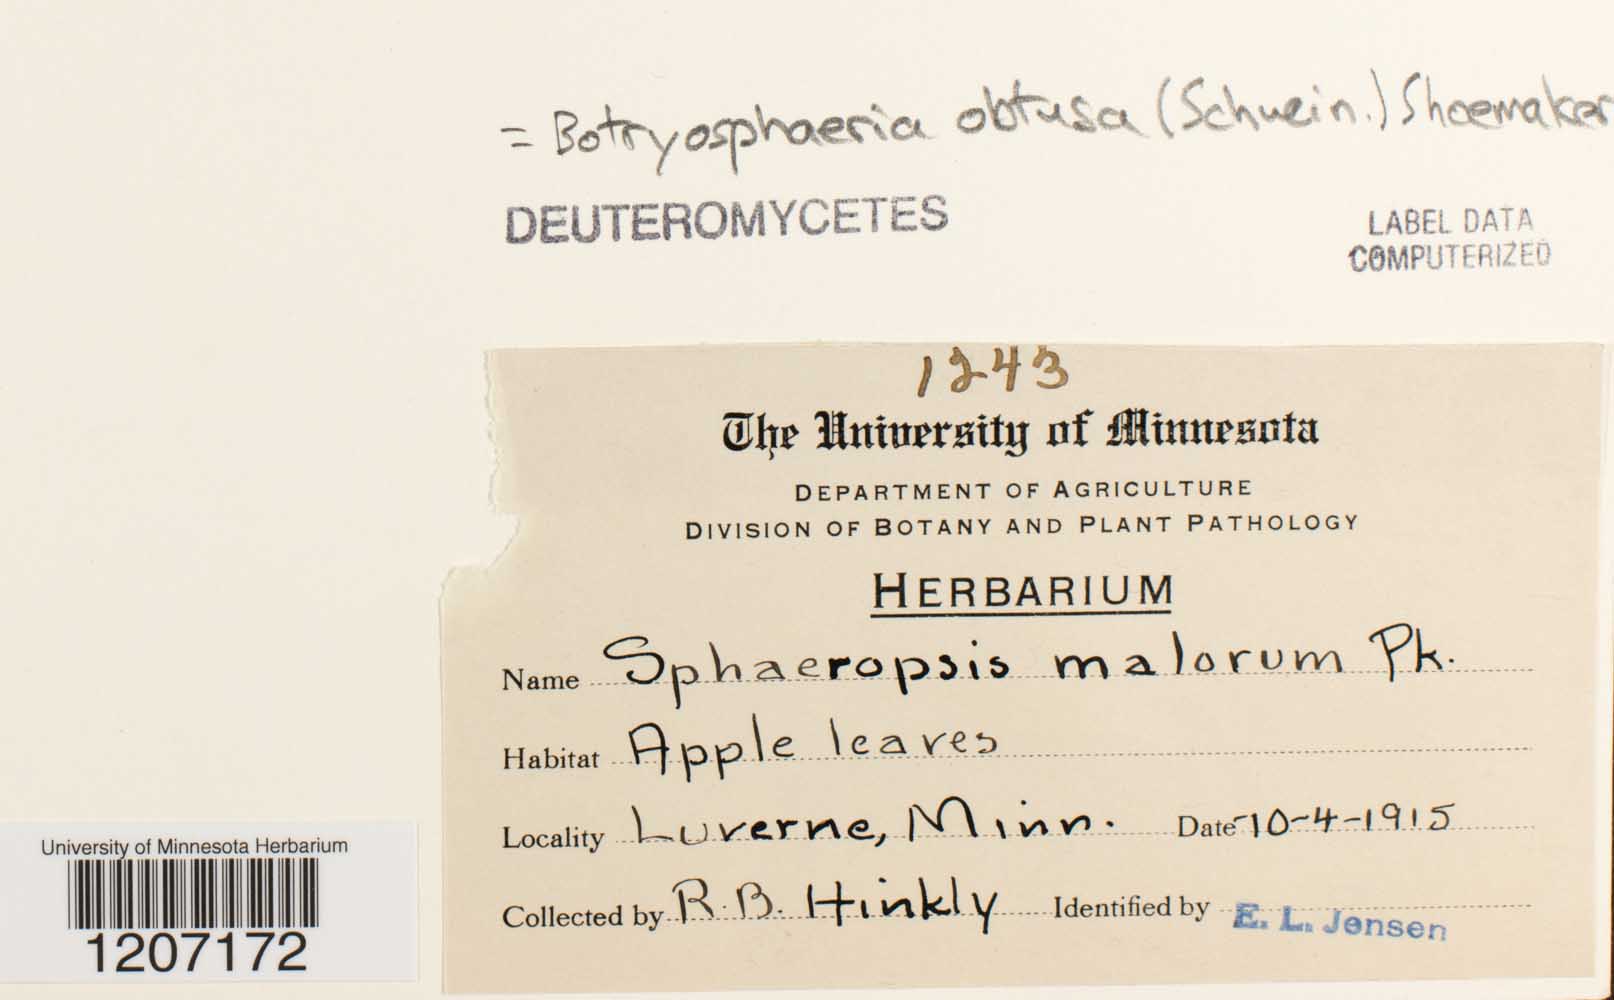 = Botryosphaeria obtusa (Schwein.) Shoemaker
DEUTEROMYCETES
LABEL DATA
COMPUTERIZED
1243
The University of Minnesota
DEPARTMENT OF AGRICULTURE
DIVISION OF BOTANY AND PLANT PATHOLOGY
HERBARIUM
Name Sphaeropsis malorum Pk.
Habitat Apple leaves
Locality Luverne, Minn. Date 10-4-1915
Collected by R.B. Hinkly Identified by E. L. Jensen
University of Minnesota Herbarium
1207172